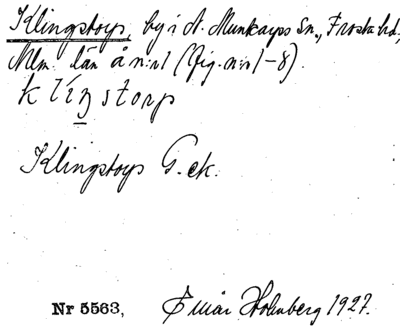 Klingstorp, by i Ö. Munkarps Sn., Frosta hd,
Mlm. län å n:r 1 (fig. n:ris 1-8).
klingstorp
Klingstorp G. ek.
Nr 5563, Einar Holmberg 1927.